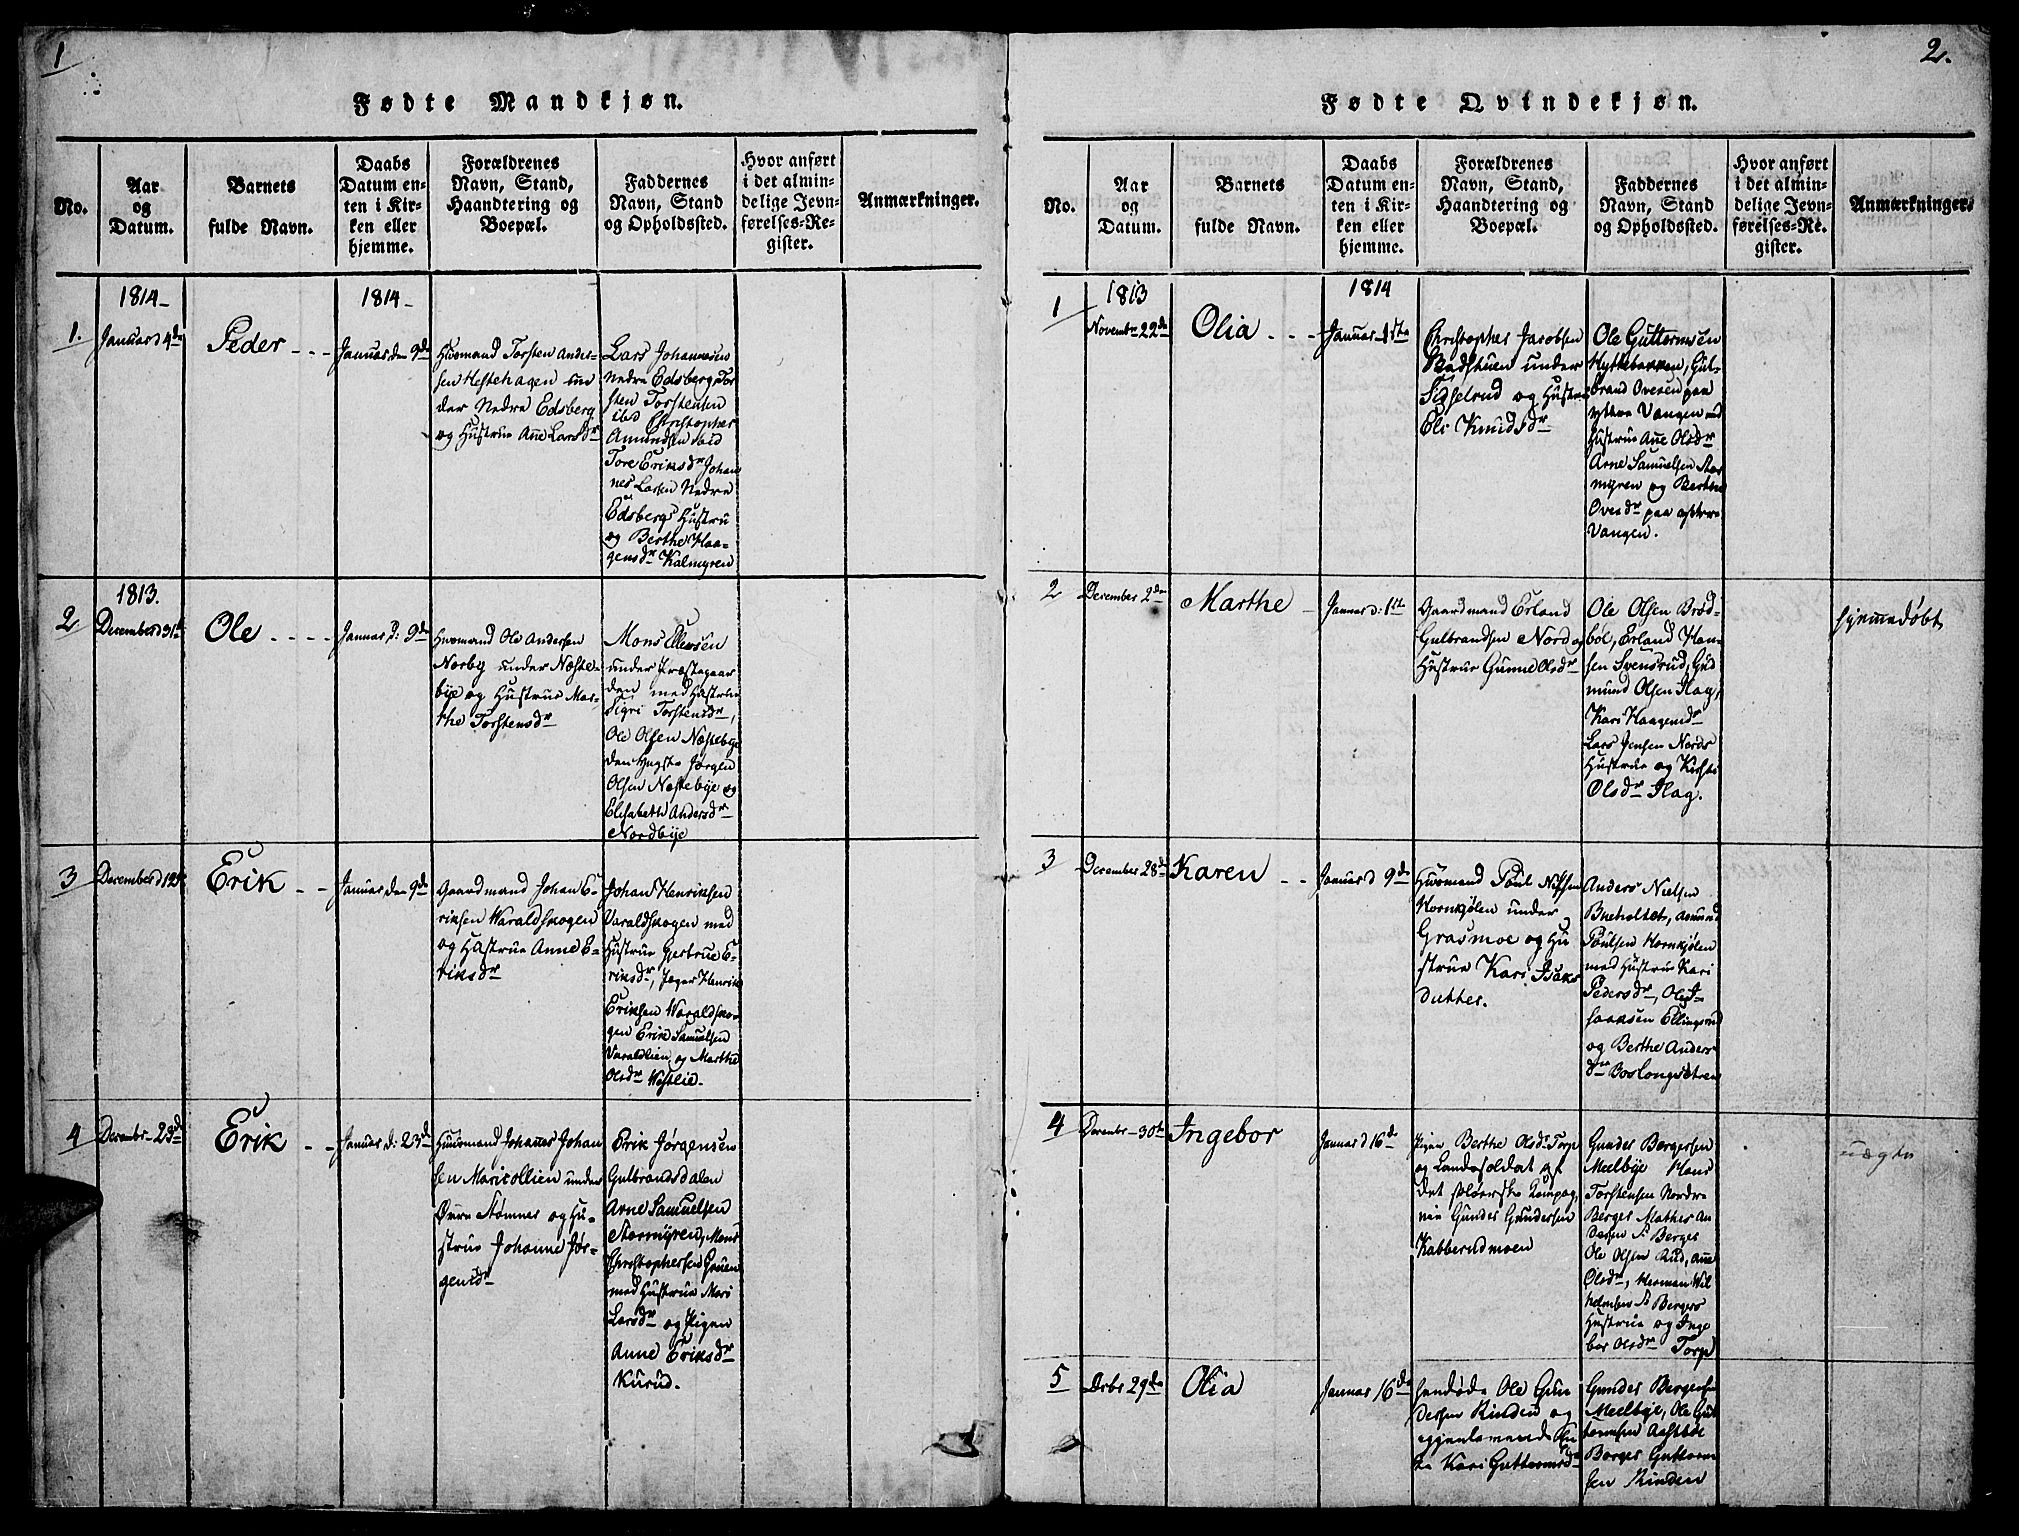 1
Fødte Mandkjøn.
No.
Aar
og
Datum.
Barnets
fulde Navn.
Daabs
Datum en-
ten i Kir-
ken eller
hjemme.
Forældrenes
Navn, Stand,
Haandtering og
Boepæl.
Faddernes
Navn, Stand
og Opholdssted.
Hvor anført
i det almin-
delige Jevn-
førelses-Re-
gister.
Anmærkninger.
1.
1814-
Januar d 4de
Peder
1814-
Januar den 9de
Huusmand Torsten Ander-
sen Hestehagen un
der Nedre Edsberg
og Hustrue Ane Larsdr
Lars Johannesen
Nedre Edsberg Tor
sten Torstensen
ibd Christopher
Amundsen ibid
Tore Eriksdr Johan
nes Larsen Nedre
Edsbergs Hustru
og Berthe Haa-
gensdr Kalmyren
2
1813.
December d 31te
Ole
Januar d: 9de
Huusmand Ole Andersen
Norby under Næste-
bye og Hustrue Mar-
the Torstensdr
Mons Ellensen
under Præstegaar
den med Hustrue
Sigri Torstensdr,
Ole Olsen Næstebye
den Yngste Jørgen
Olsen Næstebye og
Elisabeth Andersdr
Nordbye
3
December d 19de
Erik
Januar den 9de
Gaardmand Johan E-
riksen Waraldskogen
og Hustrue Anne E-
riksdr
Johan Henriksen
Varaldskogen med
Hustrue Gjertrue E-
riksdr, Jæger Henrik
Eriksen Waraldsko-
gen Erik Samuelsen
Varaldlien og Marthe
Olsdr Westlie
4
Decembr 23de
Erik
Januar d: 23de
Huusmand Johanes Johan
sen Maricollien under
Øvre Stømner og Hu-
strue Johanne Jør-
gensdr
Erik Jørgensen
Gulbrandsdalen
Arne Samuelsen
Stormyren, Mons
Christophersen Gruen
med Hustrue Mari
Larsdr og Pigen
Anne Eriksdr
Kurud.
2.
Fødte Qvindekjøn.
No.
Aar
og
Datum.
Barnets
fulde Navn.
Daabs
Datum en-
ten i Kir-
ken eller
hjemme.
Forældrenes
Navn, Stand,
Haandtering og
Boepæl.
Faddernes
Navn, Stand
og Opholdssted.
Hvor anført
i det almin-
delige Jevn-
førelses-Re-
gister.
Anmærkninger.
1
1813
Novembr 22de
Olia
1814
Januar d 1ste
Christopher Jacobsen
Badstuen under
Sigfelrud og Hustrue
Eli Knudsdr
Ole Guttormsen
Hyttebakken, Gul-
brand Ovesen paa
yttre Vangen med
Hustrue Ane Olsdr
Arne Samuelsen Stor
myren og Berthe
Ovesdr paa ofstre
Vangen.
2
December 2de
Marthe
Januar d: 1te
Gaardmand Erland
Gulbrandsen Nord og
Hustrue Gunne Olsdr
Ole Olsen Brød-
bøl, Erland Han-
sen Svensrud, Gud
mund Olsen Slag,
Kari Haagensdr
Lars Jensen Nords
Hustrue og Kirsti
Olsdr Slag.
hjemmedøbt
3
December 28de
Karen
Januar d 9de
Huusmand Poul Nilssen
Kornkjølen under
Grasmoe og Hu
strue Kari Isaks
datter.
Anders Nielsen
Bueholtet, Amund
Poulsen Kornkjølen
med Hustrue Kari
Pedersdr, Ole I-
saaksen Ellingsrud
og Berthe Anders
dr Boslongsætren
4
Decembr 30te
Ingebor
Januar d 16de
Pigen Berthe Olsdr Torp
og Landsoldat af
det soløerske Compag-
nie Gunder Gundersen
Kabberudmoen
Gunder Bergersen
Meelbye Hans
Torstensen Nordre
Berger Mathes An
dersen S Berger
Ole Olsen Rud, Ane
Olsdr, Herman Wil
helmsen S Bergers
Hustrue og Inge
bor Olsdr Torp
uægte
5
Decbr 29de
Olia
Januar 16de
Ole Gun
dersen Rinden og
En
ke Kari Guttormsdr
Gunder Bergersen
Meelbye, Ole Gut
tormsen Aastbøl
Borger Guttorm
sen Rinden